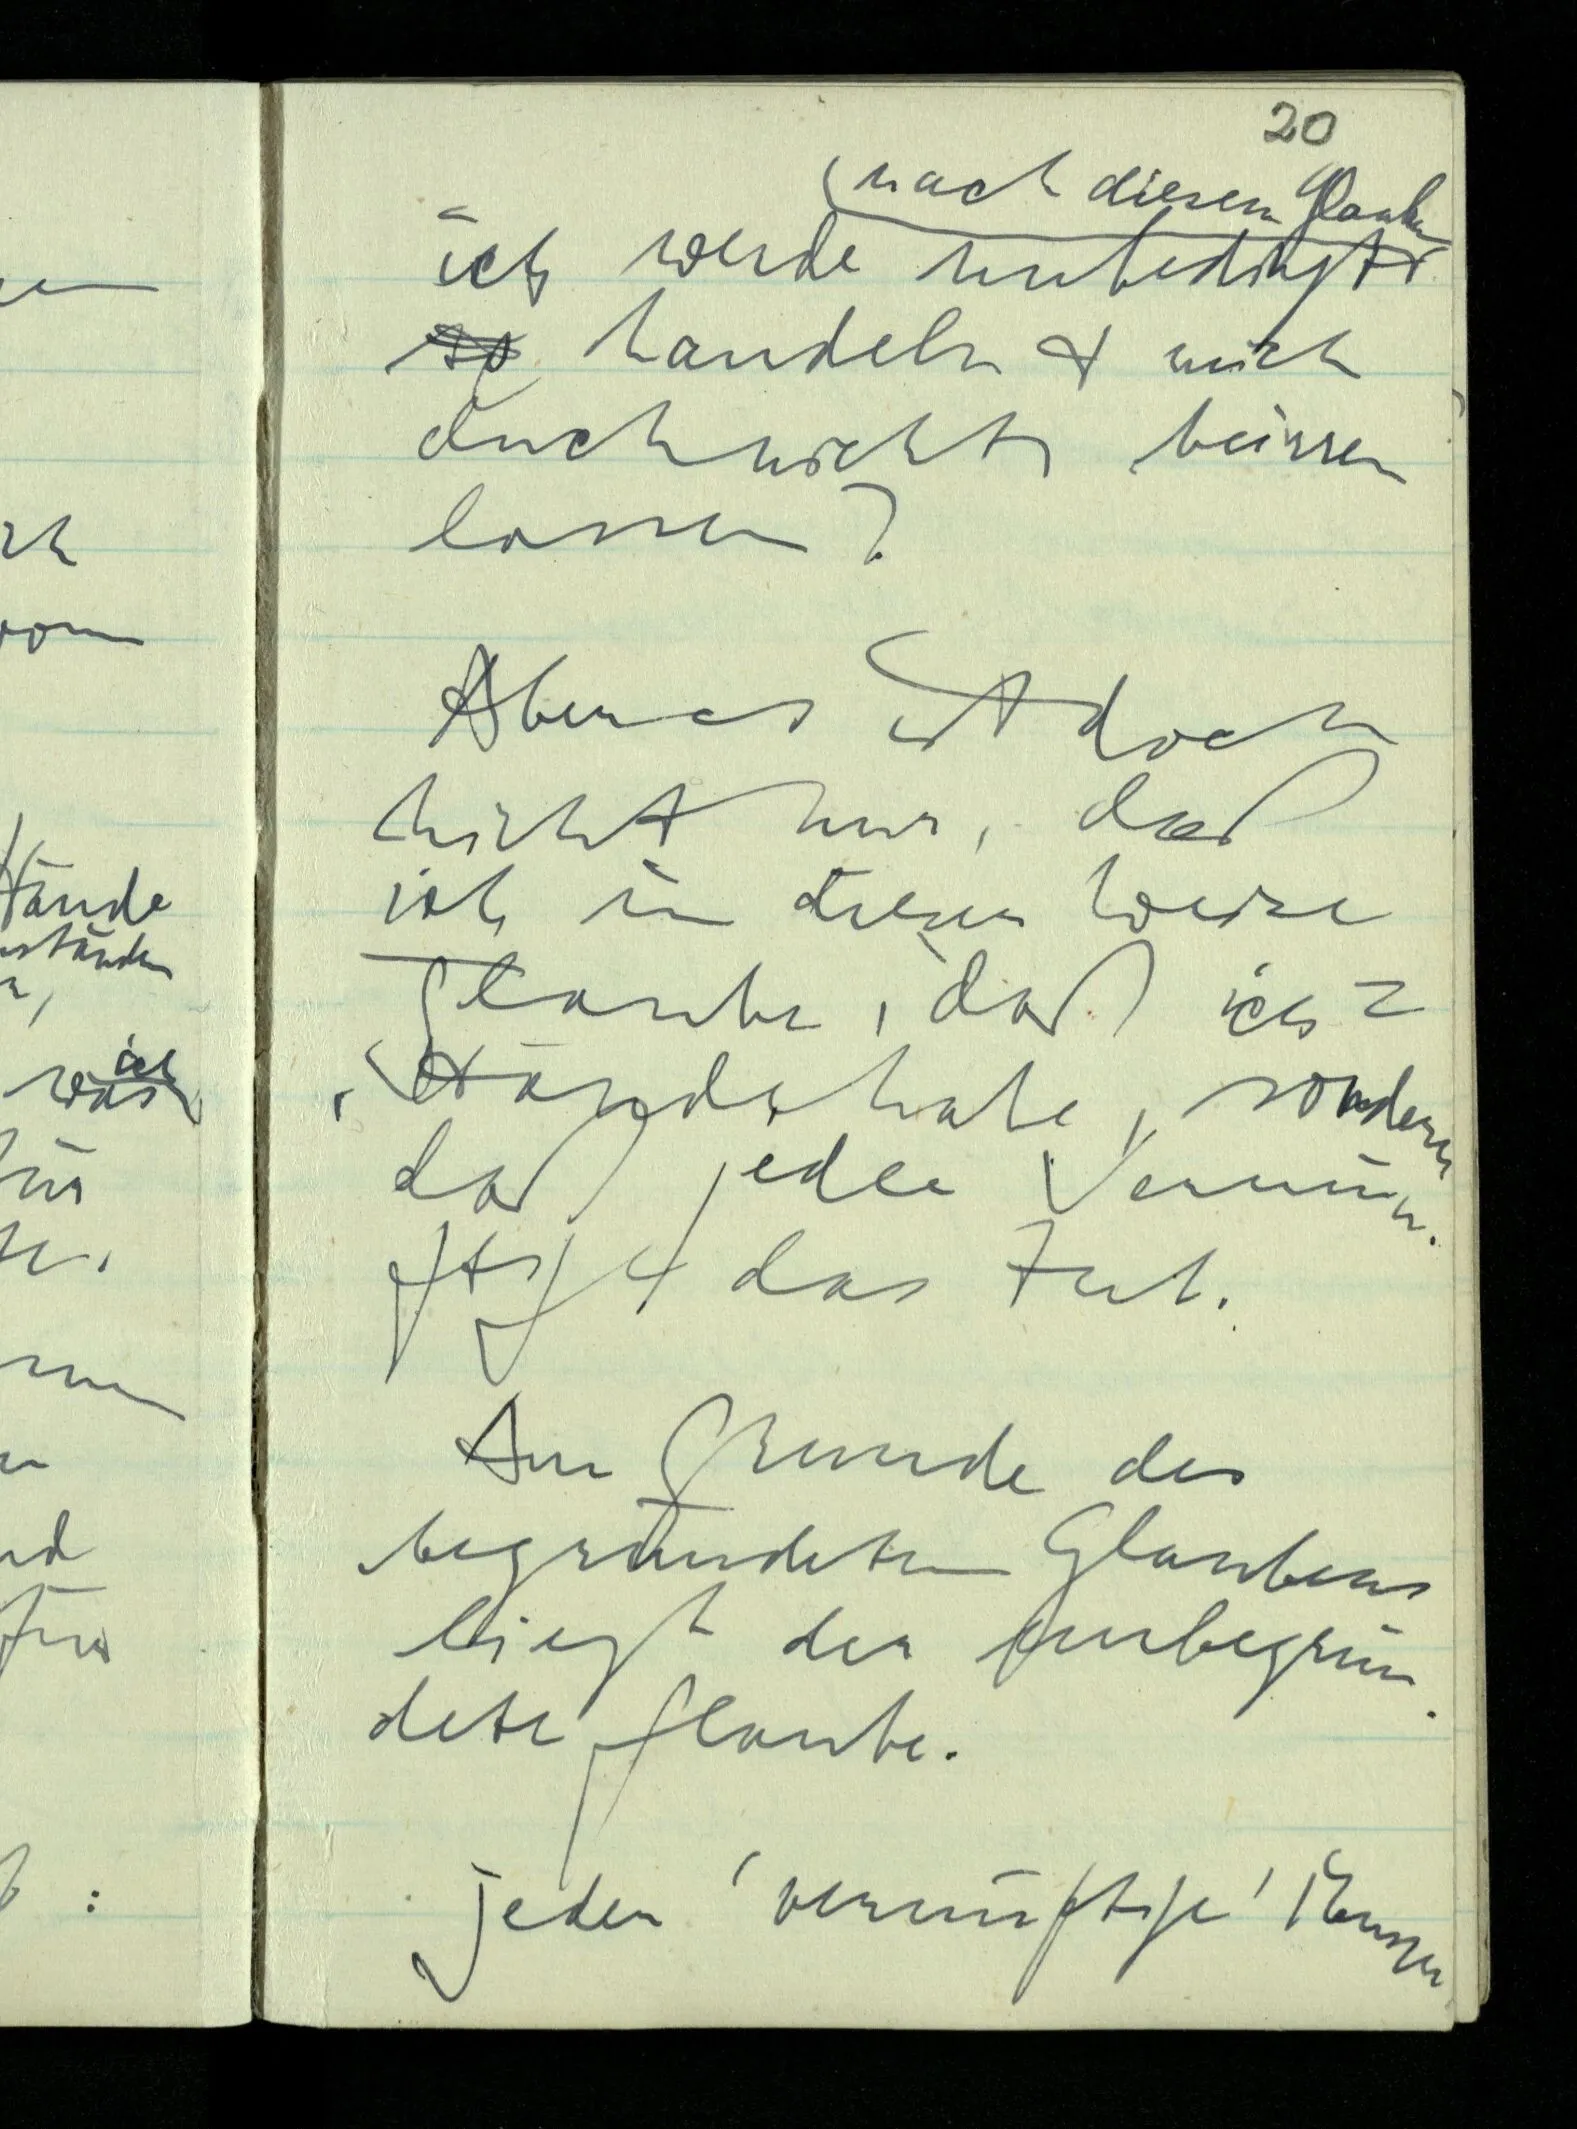 20
nach diesem Glauben
ich werde unbedingt
so handeln & mich
durch nichts beirren
lassen?
Aber es ist doch
nicht nur, daß
ich in dieser Weise
glaube, daß ich 2
Hände habe, sondern
daß jeder Vernün-
ftige das tut.
Am Grunde des
begründeten Glaubens
liegt der unbegrün-
dete Glaube.
Jeder 'vernünftige' Mensch
Hände
ich
was